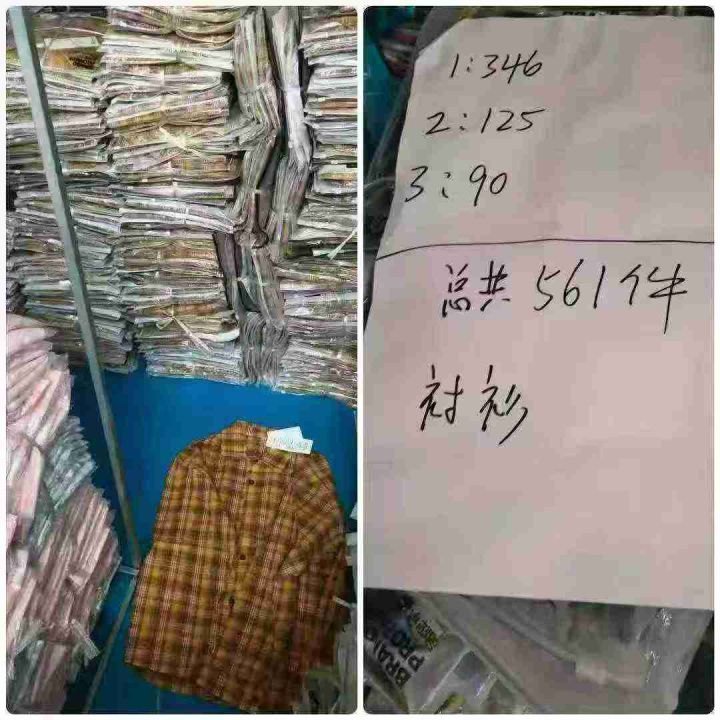 1:346
2:125
3:90
总共561件
衬衫
BRAN
PRO